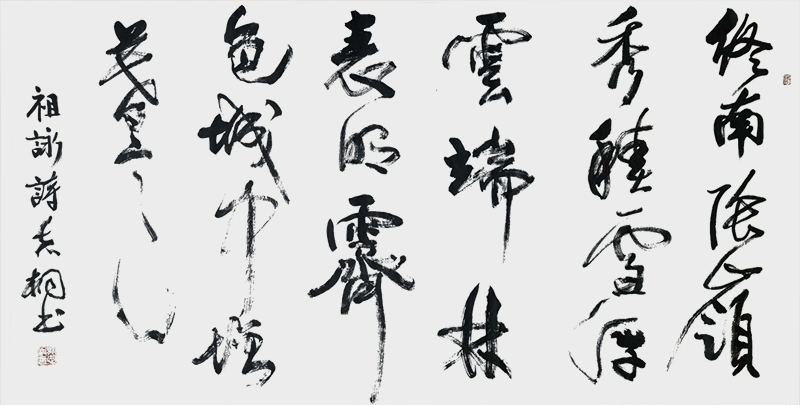 終南陰嶺
秀積雪浮
雲端林
表明霽
色城中增
暮寒
祖詠詩 桐书